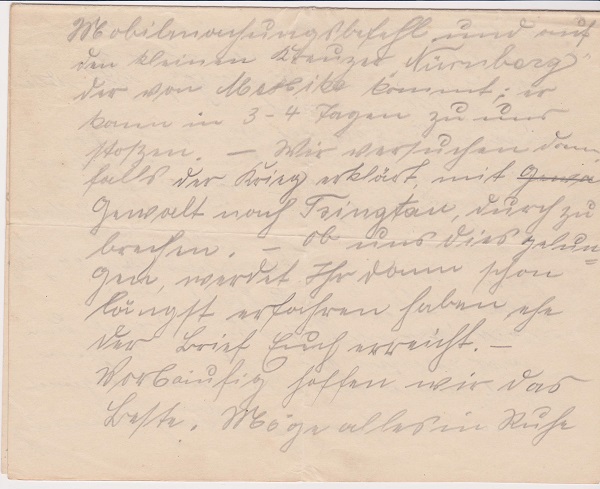 Mobilmachungsbefehl und auf
den kleinen Kreuzer „Nürnberg"
der von Mexiko kommt; er
kann in 3-4 Tagen zu uns
stoßen. — Wir versuchen dann,
falls der Krieg erklärt, mit
Gewalt nach Tsingtau, durchzu
brechen. — Ob uns dies gelun=
gen, werdet Ihr dann schon
längst erfahren haben ehe
der Brief Euch erreicht. —
Vorläufig hoffen wir das
Beste. Möge alles in Ruhe